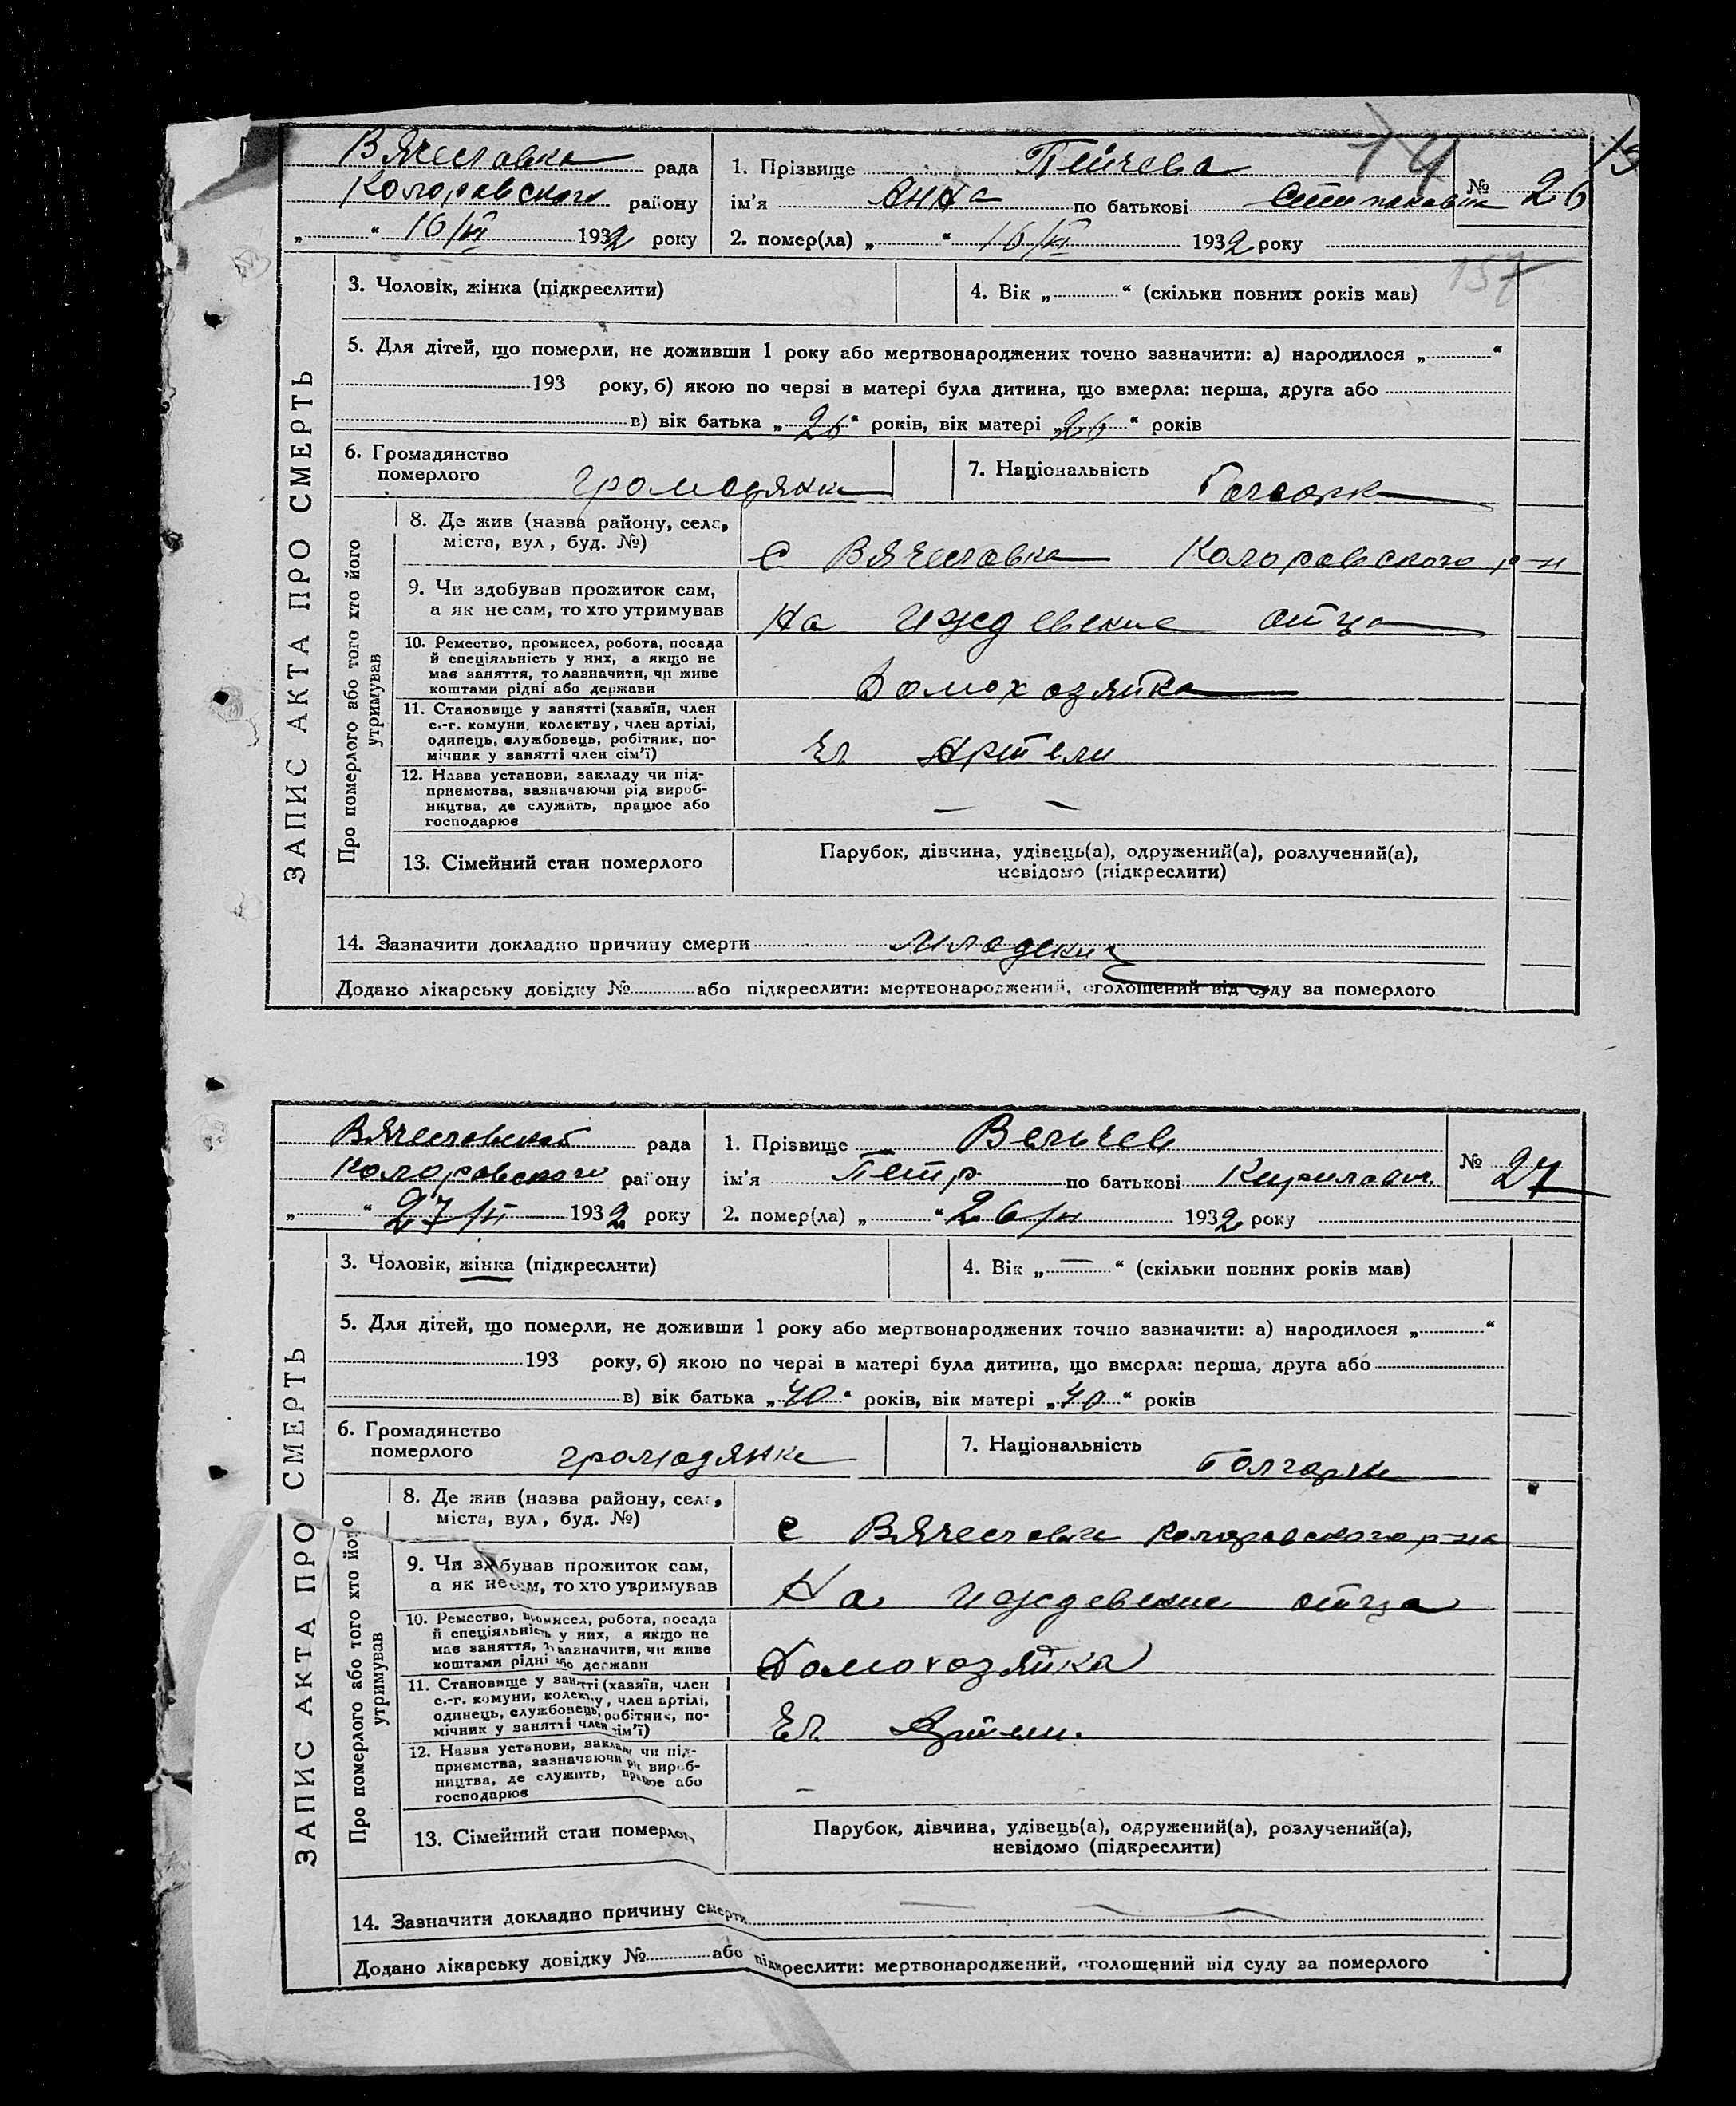 Вячеславка рада
Коларовского району
„ “ 16/VI 1932 року
1. Прізвище Пейчева
ім’я Анна по батькові Степановна
2. помер(ла) „ “ 16/VI 1932 року
№ 26
14
157
ЗАПИС АКТА ПРО СМЕРТЬ
3. Чоловік, жінка (підкреслити)
4. Вік „ “ (скільки повних років мав)
5. Для дітей, що померли, не доживши 1 року або мертвонароджених точно зазначити: а) народилося „ “
193 року, б) якою по черзі в матері була дитина, що вмерла: перша, друга або
в) вік батька „26“ років, вік матері „26“ років
6. Громадянство
померлого громодянка
7. Національність Болгарк
Про померлого або того хто його
утримував
8. Де жив (назва району, села,
міста, вул, буд. №)
с Вячеславка Коларовского р-н
9. Чи здобував прожиток сам,
а як не сам, то хто утримував
На иждевение отца
10. Ремество, промисел, робота, посада
й спеціяльність у них, а якщо не
має заняття, то зазначити, чи живе
коштами рідні або держави
Домохозяйка
11. Становище у занятті (хазяїн, член
с.-г. комуни, колектву, член артілі,
одинець, службовець, робітник, по-
мічник у занятті член сім’ї)
Чл Артели
12. Назва установи, закладу чи під-
приємства, зазначаючи рід вироб-
ництва, де служить, працює або
господарює
— —
13. Сімейний стан померлого
Парубок, дівчина, удівець(а), одружений(а), розлучений(а),
невідомо (підкреслити)
14. Зазначити докладно причину смерти
Додано лікарську довідку № або підкреслити: мертвонароджений, оголошений від суду за померлого
Вячеславской рада
Коларовского району
„ “ 27/VI 1932 року
1. Прізвище Вельчев
ім’я Петр по батькові Кирилович
2. помер(ла) „ “ 26/VI 1932 року
№ 27
ЗАПИС АКТА ПРО СМЕРТЬ
3. Чоловік, жінка (підкреслити)
4. Вік „—“ (скільки повних років мав)
5. Для дітей, що померли, не доживши 1 року або мертвонароджених точно зазначити: а) народилося „ “
193 року, б) якою по черзі в матері була дитина, що вмерла: перша, друга або
в) вік батька „40“ років, вік матері „40“ років
6. Громадянство
померлого громодянка
7. Національність Болгарка
Про померлого або того хто його
утримував
8. Де жив (назва району, села,
міста, вул, буд. №)
с Вячеславка Коларовского р-на
9. Чи здобував прожиток сам,
а як не сам, то хто утримував
На иждевение отца
10. Ремество, промисел, робота, посада
й спеціяльність у них, а якщо не
має заняття, то зазначити, чи живе
коштами рідні або держави
Домохозяйка
11. Становище у занятті (хазяїн, член
с.-г. комуни, колектву, член артілі,
одинець, службовець, робітник, по-
мічник у занятті член сім’ї)
Чл Артели.
12. Назва установи, закладу чи під-
приємства, зазначаючи рід вироб-
ництва, де служить, працює або
господарює
—
13. Сімейний стан померлого
Парубок, дівчина, удівець(а), одружений(а), розлучений(а),
невідомо (підкреслити)
14. Зазначити докладно причину смерти — —
Додано лікарську довідку № або підкреслити: мертвонароджений, оголошений від суду за померлого